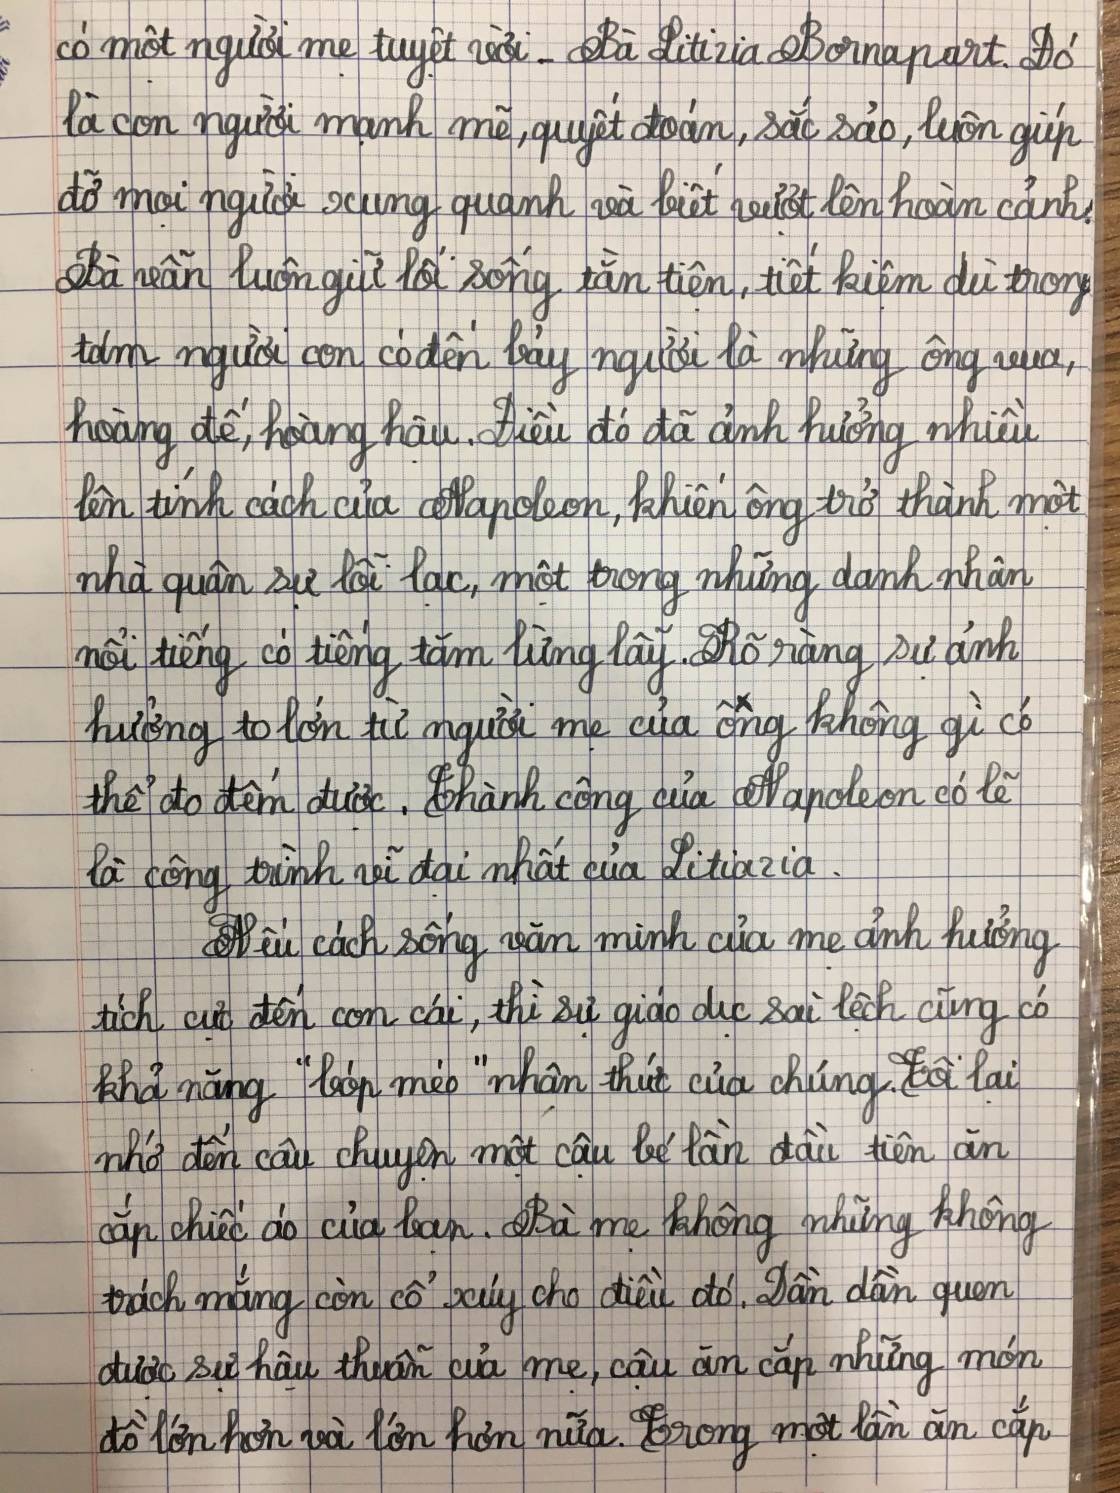 có một người mẹ tuyệt vời - Bà Litizia Bornapart. Đó
là con người mạnh mẽ, quyết đoán, sắc sảo, luôn giúp
đỡ mọi người xung quanh và biết vượt lên hoàn cảnh.
Bà vẫn luôn giữ lối sống tằn tiện, tiết kiệm dù trong
tám người con có đến bảy người là những ông vua,
hoàng đế, hoàng hậu. Điều đó đã ảnh hưởng nhiều
lên tính cách của Napoleon, khiến ông trở thành một
nhà quân sự lỗi lạc, một trong những danh nhân
nổi tiếng có tiếng tăm lừng lẫy. Rõ ràng sự ảnh
hưởng to lớn từ người mẹ của ông không gì có
thể đo đếm được. Thành công của Napoleon có lẽ
là công trình vĩ đại nhất của Litiazia.
Nếu cách sống văn minh của mẹ ảnh hưởng
tích cực đến con cái, thì sự giáo dục sai lệch cũng có
khả năng "bóp méo" nhận thức của chúng. Tôi lại
nhớ đến câu chuyện một cậu bé lần đầu tiên ăn
cắp chiếc áo của bạn. Bà mẹ không những không
trách mắng còn cổ xúy cho điều đó. Dần dần quen
được sự hậu thuẫn của mẹ, cậu ăn cắp những món
đồ lớn hơn và lớn hơn nữa. Trong một lần ăn cắp